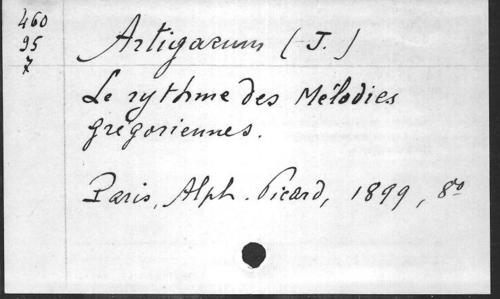 460
95
7
Artigarum (J.)
Le rythme des Mélodies
grégoriennes.
Paris, Alph. Picard, 1899, 8º